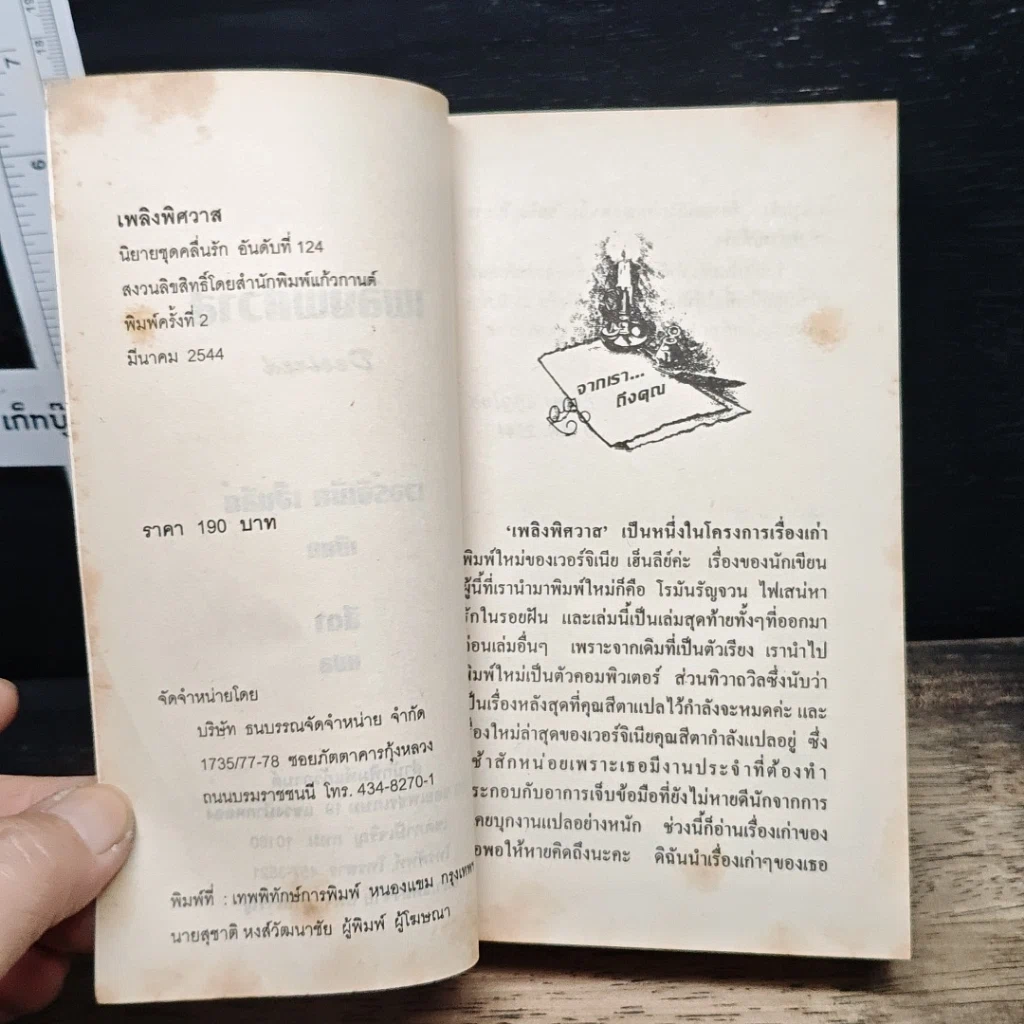 7
6
เก็ทบุ๊
เพลิงพิศวาส
นิยายชุดคลื่นรัก อันดับที่ 124
สงวนลิขสิทธิ์โดยสำนักพิมพ์แก้วกานต์
พิมพ์ครั้งที่ 2
มีนาคม 2544
ราคา 190 บาท
จัดจำหน่ายโดย
บริษัท ธนบรรณจัดจำหน่าย จำกัด
1735/77-78 ซอยภัตตาคารกุ้งหลวง
ถนนบรมราชชนนี โทร. 434-8270-1
พิมพ์ที่ : เทพพิทักษ์การพิมพ์ หนองแขม กรุงเทพฯ
นายสุชาติ หงส์วัฒนาชัย ผู้พิมพ์ ผู้โฆษณา
จากเรา...
ถึงคุณ
'เพลิงพิศวาส' เป็นหนึ่งในโครงการเรื่องเก่า
พิมพ์ใหม่ของเวอร์จิเนีย เฮ็นลีย์ค่ะ เรื่องของนักเขียน
ผู้นี้ที่เรานำมาพิมพ์ใหม่ก็คือ โรมันรัญจวน ไฟเสน่หา
รักในรอยฝัน และเล่มนี้เป็นเล่มสุดท้ายทั้งๆที่ออกมา
ก่อนเล่มอื่นๆ เพราะจากเดิมที่เป็นตัวเรียง เรานำไป
พิมพ์ใหม่เป็นตัวคอมพิวเตอร์ ส่วนทิวาถวิลซึ่งนับว่า
เป็นเรื่องหลังสุดที่คุณสีตาแปลไว้กำลังจะหมดค่ะ และ
เรื่องใหม่ล่าสุดของเวอร์จิเนียคุณสีตากำลังแปลอยู่ ซึ่ง
ช้าสักหน่อยเพราะเธอมีงานประจำที่ต้องทำ
ประกอบกับอาการเจ็บข้อมือที่ยังไม่หายดีนักจากการ
เคยบุกงานแปลอย่างหนัก ช่วงนี้ก็อ่านเรื่องเก่าของ
เธอพอให้หายคิดถึงนะคะ ดิฉันนำเรื่องเก่าๆของเธอ